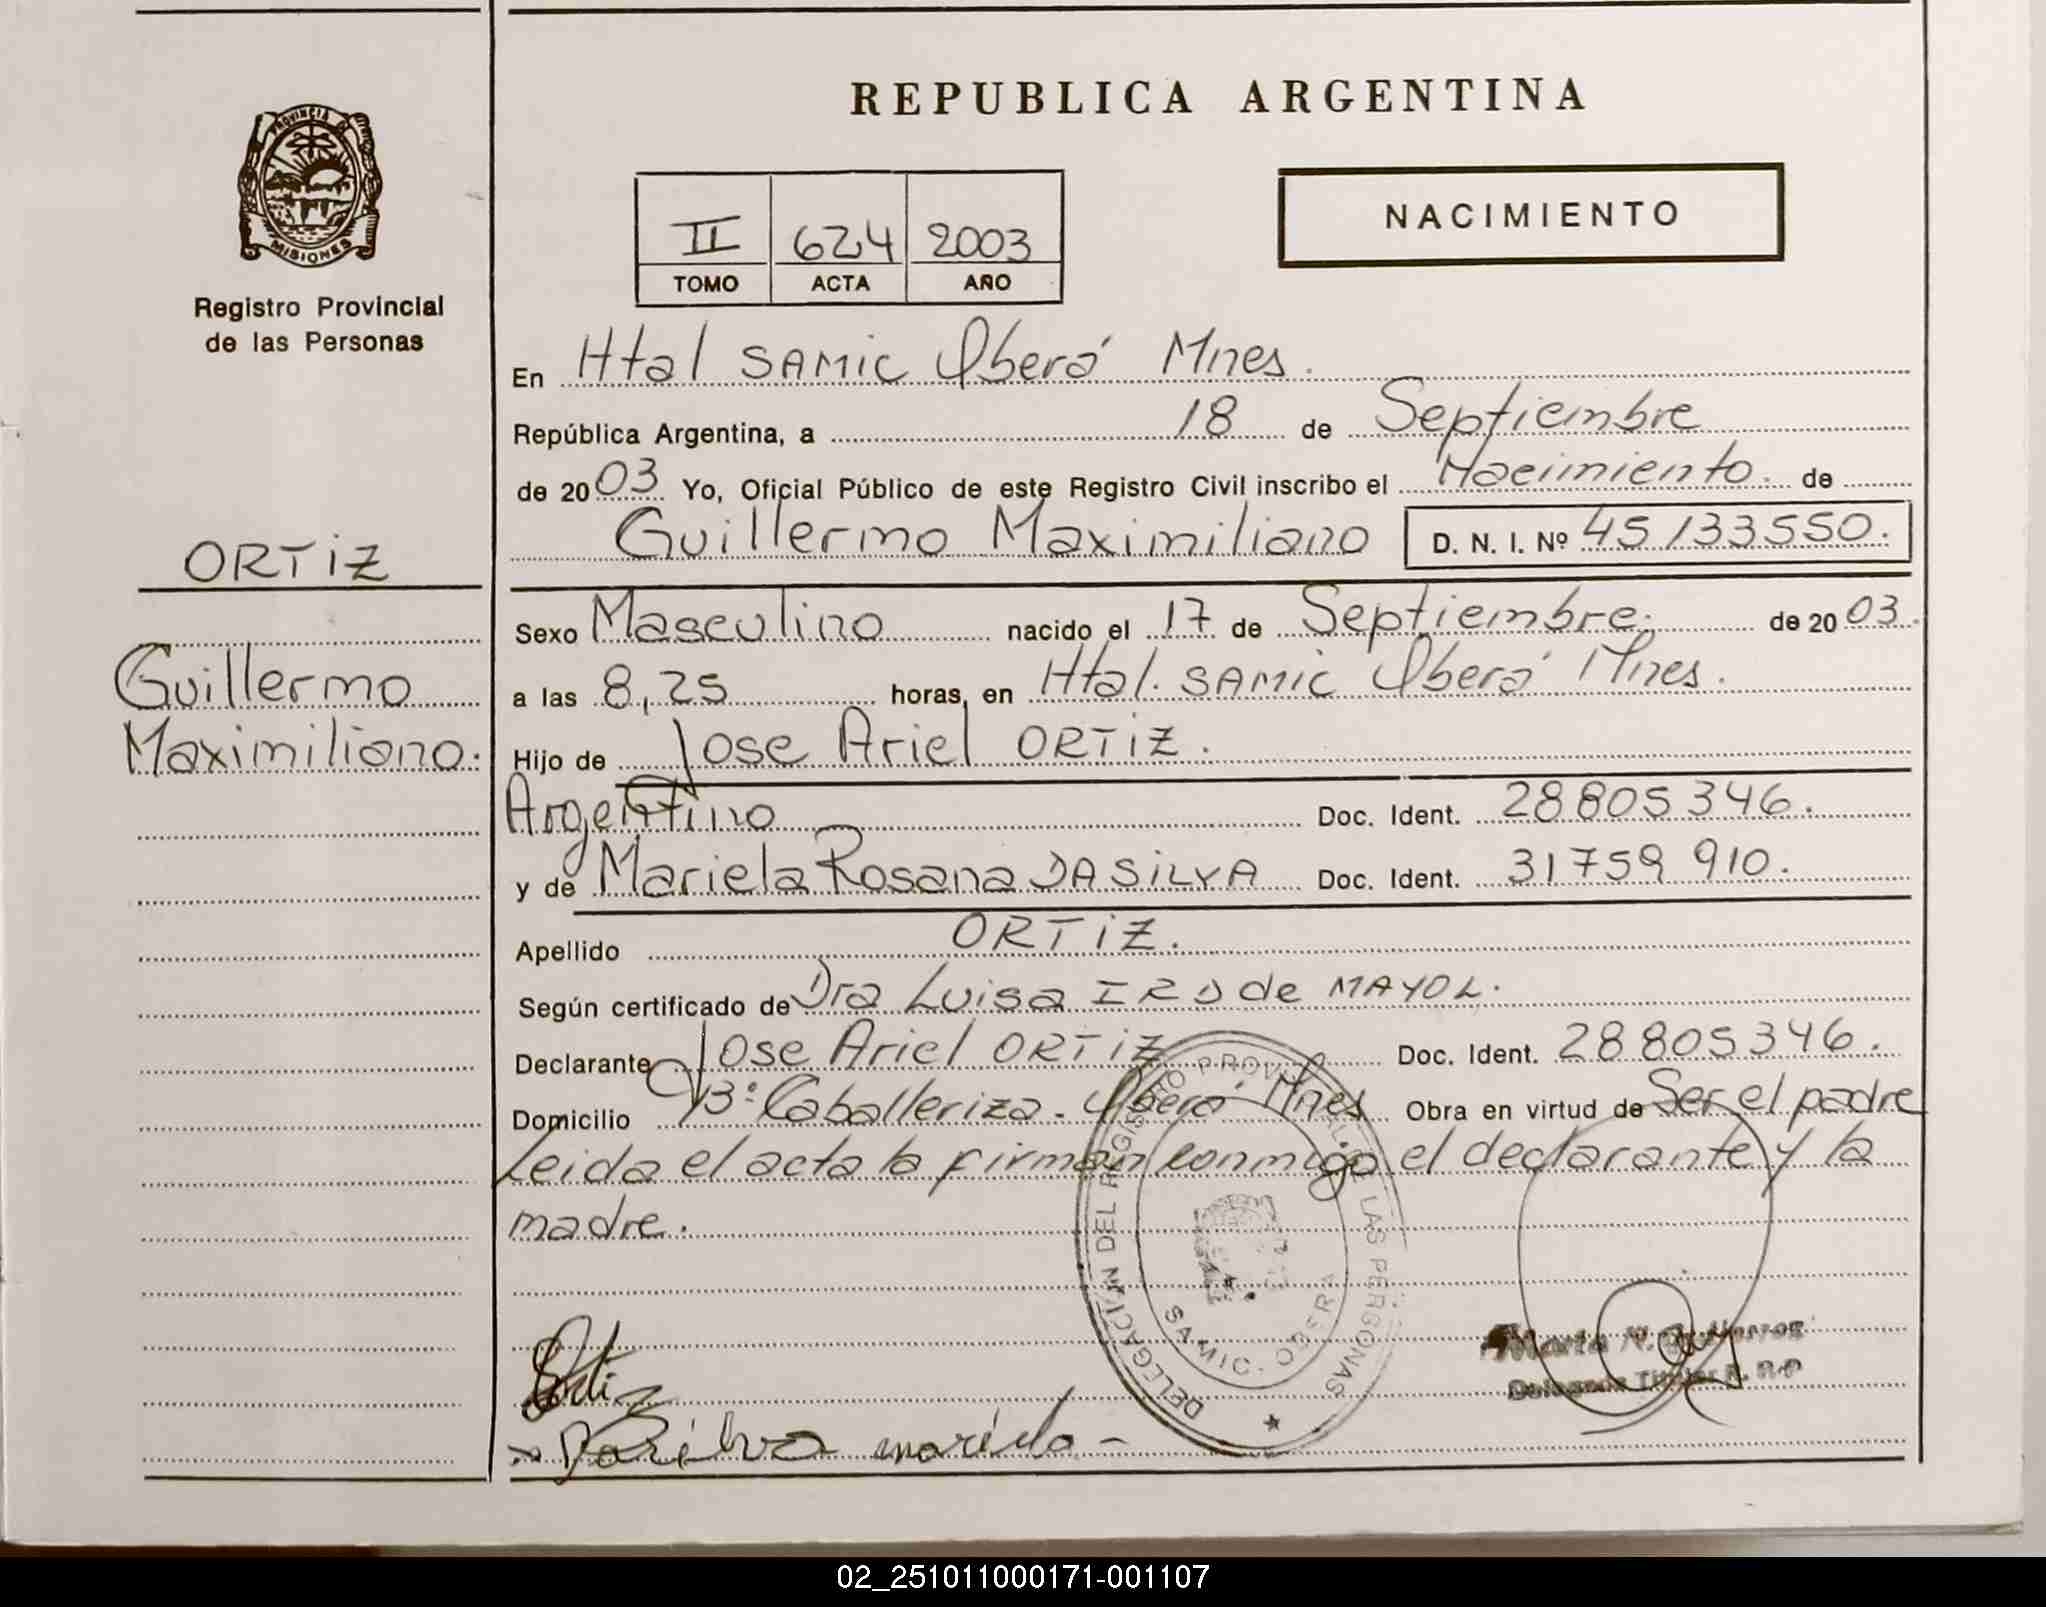 REPUBLICA ARGENTINA
PROVINCIA DE
MISIONES
Registro Provincial
de las Personas
NACIMIENTO
II 624 2003
TOMO ACTA AÑO
ORTIZ
Guillermo
Maximiliano.
En Htal SAMIC Oberá Mnes.
República Argentina, a 18 de Septiembre
de 2003 Yo, Oficial Público de este Registro Civil inscribo el Nacimiento. de
Guillermo Maximiliano D. N. I. Nº 45133550.
Sexo Masculino nacido el 17 de Septiembre. de 2003.
a las 8,25 horas, en Htal. SAMIC Oberá Mnes.
Hijo de Jose Ariel ORTIZ.
Argentino Doc. Ident. 28805346.
y de Mariela Rosana DA SILVA Doc. Ident. 31759910.
Apellido ORTIZ.
Según certificado de Dra Luisa IRD de MAYOL.
Declarante Jose Ariel ORTIZ Doc. Ident. 28805346.
Domicilio Bº Caballeriza - Oberá Mnes Obra en virtud de Ser el padre
Leida el acta la firman conmigo el declarante y la
madre.
DELEGACIÓN DEL REGISTRO PROVINCIAL DE LAS PERSONAS
SAMIC - OBERA
Ortiz
Marta N. Gutierrez
Delegada Titular R. P. P
Da Silva mariela -
02_251011000171-001107